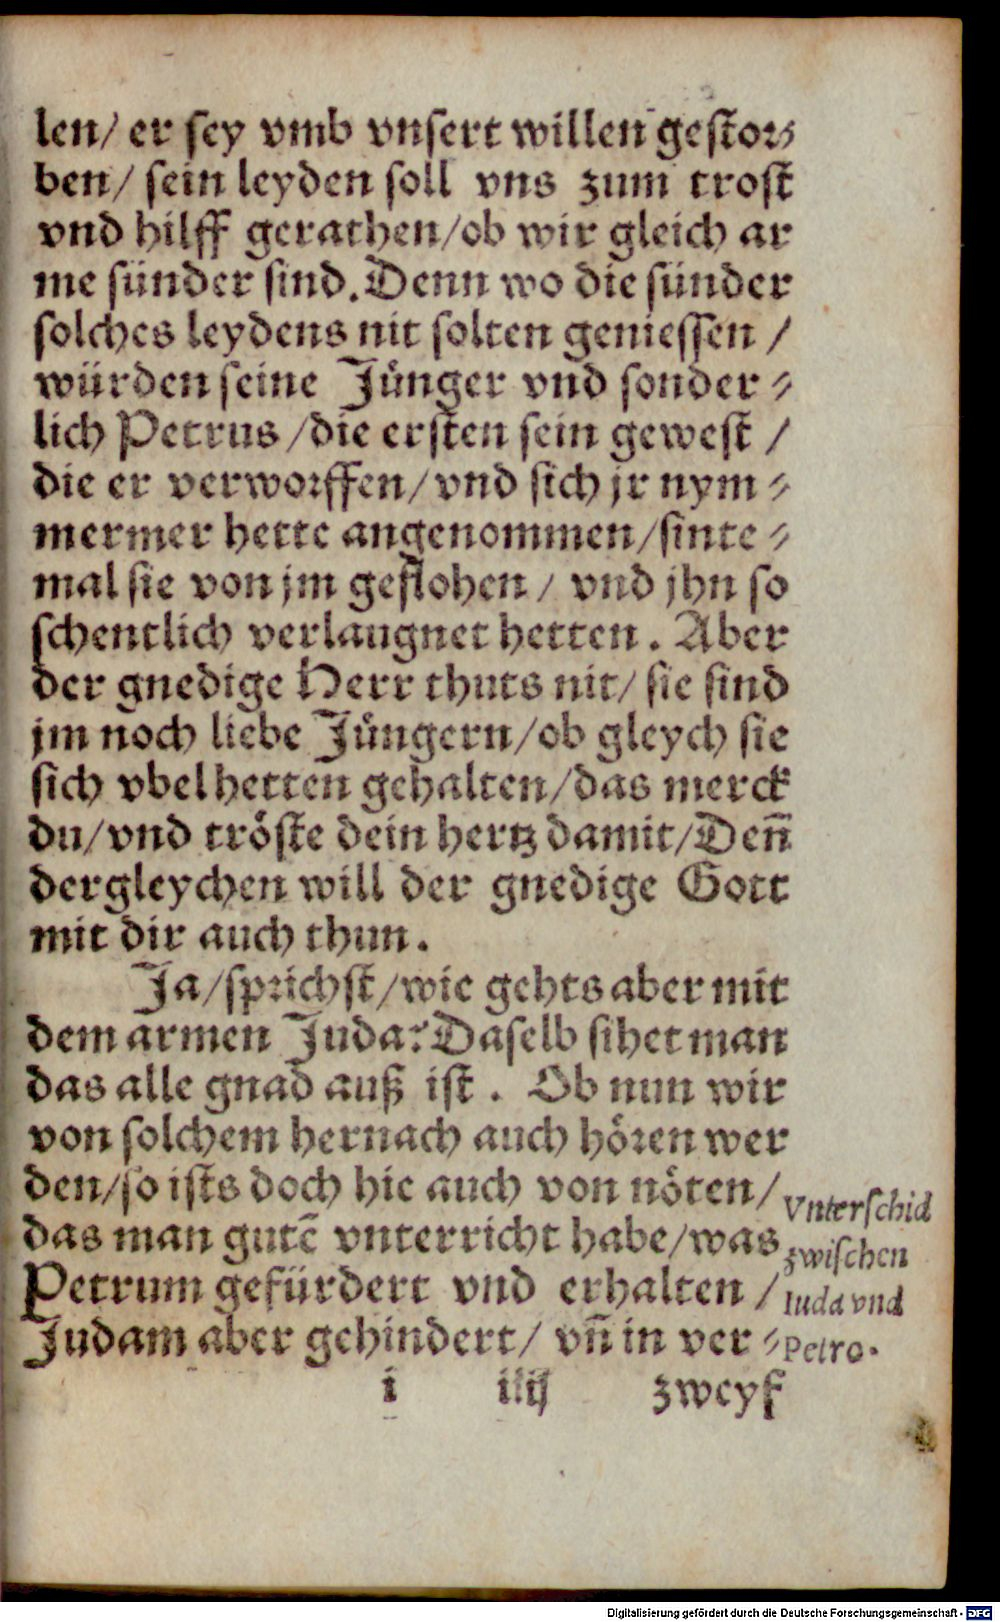 len/ er sey vmb vnsert willen gestor⸗
ben/ sein leyden soll vns zum trost
vnd hilff gerathen/ob wir gleich ar
me sünder sind. Denn wo die sünder
solches leydens nit solten geniessen /
würden seine Jünger vnd sonder⸗
lich Petrus /die ersten sein gewest /
die er verworffen/vnd sich jr nym⸗
mermer hette angenommen/sinte⸗
mal sie von jm geflohen / vnd jhn so
schentlich verlaugnet hetten. Aber
der gnedige Herr thuts nit/ sie sind
jm noch liebe Jüngern/ob gleych sie
sich vbel hetten gehalten/das merck
du/vnd tröste dein hertz damit/Deñ
dergleychen will der gnedige Gott
mit dir auch thun.
Ja/sprichst/wie gehts aber mit
dem armen Juda? Daselb sihet man
das alle gnad auß ist. Ob nun wir
von solchem hernach auch hören wer
den/so ists doch hie auch von nöten/
das man gutē vnterricht habe/was
Petrum gefürdert vnd erhalten /
Judam aber gehindert/ vñ in ver⸗
Vnterschid
zwischen
Iuda vnd
Petro.
i iiij zweyf
Digitalisierung gefördert durch die Deutsche Forschungsgemeinschaft - DFG